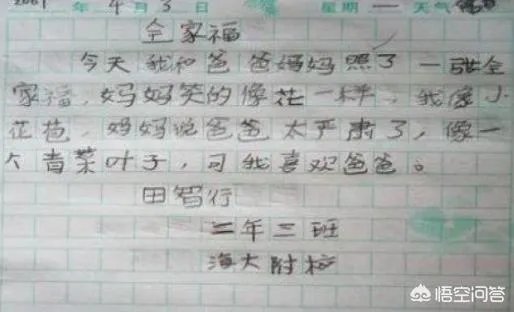 年 4月 3日 星期一 天气
全家福
今天我和爸爸妈妈照了一张全
家福，妈妈笑的像花一样，我像小
花苞，妈妈说爸爸太严肃了，像一
个青菜叶子，可我喜欢爸爸。
田智行
二年三班
海大附校
悟空问答